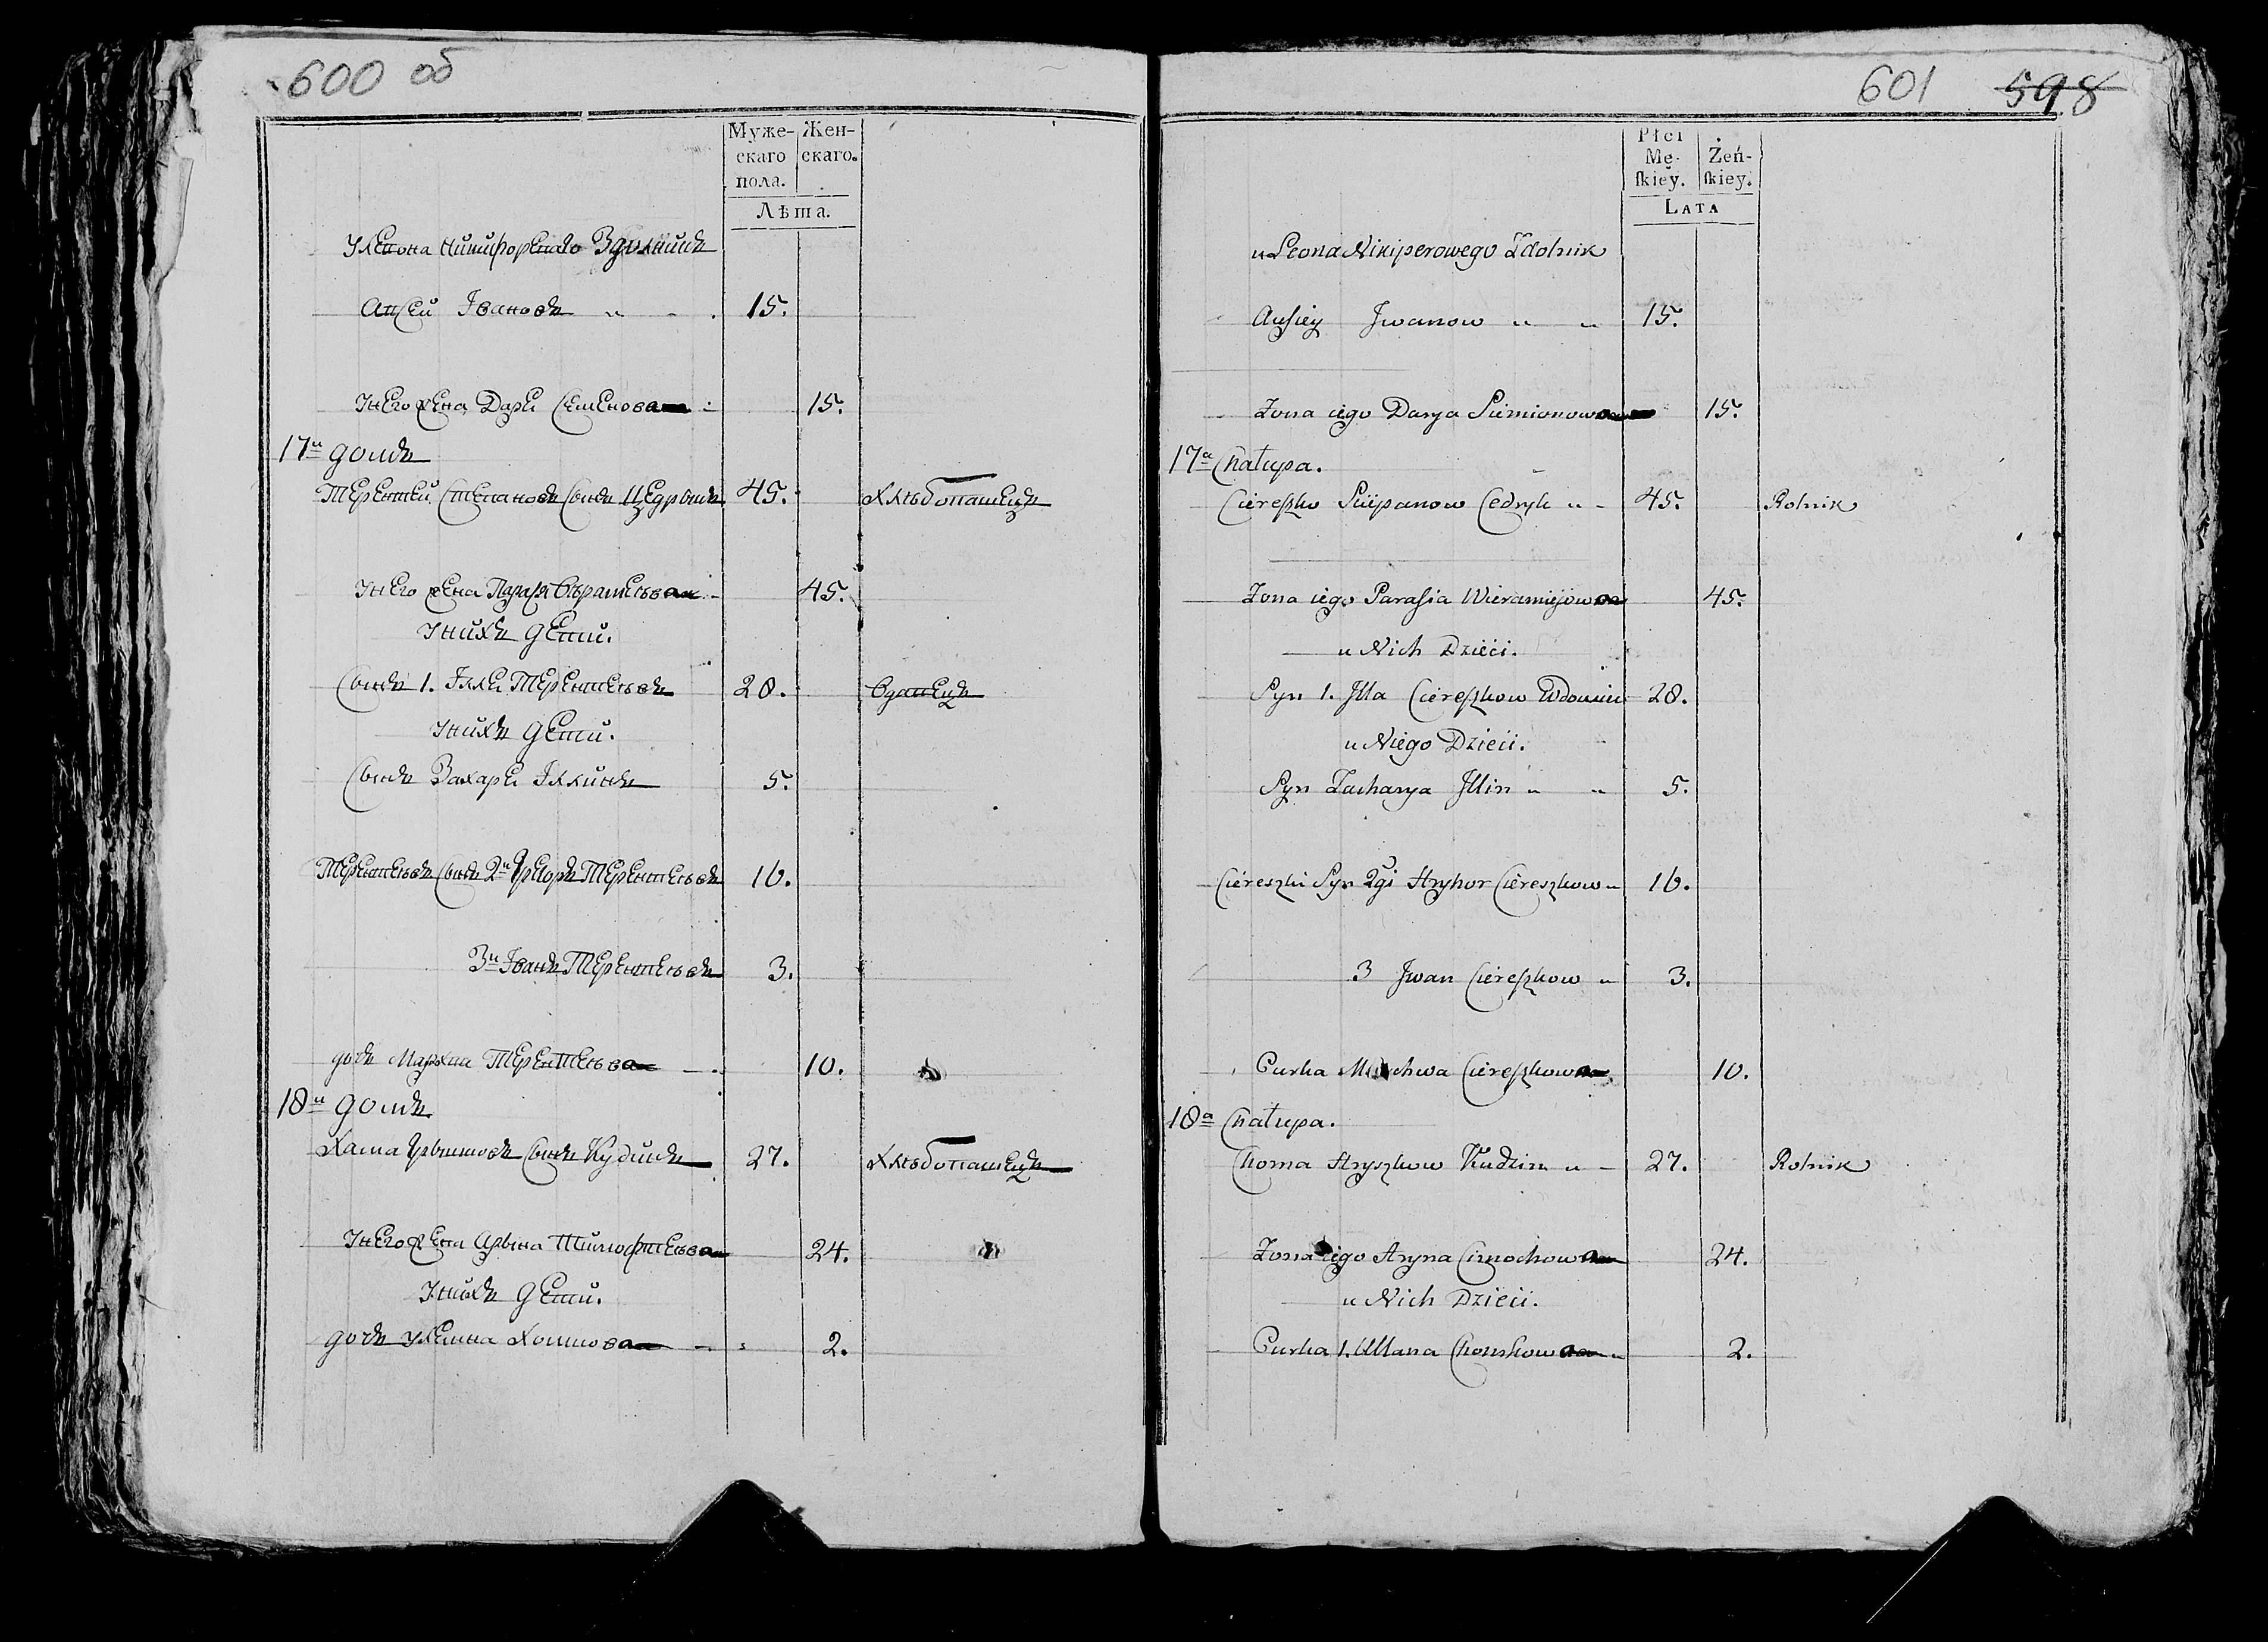 600 об
Муже- Жен-
скаго скаго.
пола.
Лѣта.
УЛеона Никифоренаго Здолникъ
Апсеи Івановъ 15.
Унего жена Дарь Семенова 15.
17й домъ
Терентей Степановъ Сынъ Цедрыкъ 45. Хлѣбопашецъ
Унего жена Парася 45.
Унихъ дети.
Сынъ 1. Іллі Терентьевъ 28. Вдовецъ
Унихъ дети.
Сынъ Захарі Іллинъ 5.
Терентьевъ Сынъ 2й Грегоръ Терентьевъ 16.
3й Іванъ Терентьевъ 3.
дочь Мархва Терентьева 10.
18й домъ
Хама Грышковъ Сынъ Кудинъ 27. Хлѣбопашецъ
Унего жена Арына Тимофтеева 24.
Унихъ дети.
дочь Улянна Хомкова 2.
601 598
Płci
Mę- Żeń-
ſkiey. ſkiey.
LATA
u Leona Nikiperowego Zdolnik
Auſiey Jwanow 15.
Zona iego Darya Siemionowa 15.
17a Chałupa.
Ciereſzko Sciepanow Cedryk 45. Rolnik
Zona iego Paraſia Wieramiejowa 45.
u Nich Dzieci.
Syn 1. Jlla Ciereſzkow Wdowiec 28.
u Niego Dzieci.
Syn Zacharya Jllin 5.
Ciereszki Syn 2gi Hryhor Ciereszkow 16.
3 Jwan Ciereſzkow 3.
Curka Marchwa Ciereſzkowa 10.
18a Chałupa.
Choma Hryszkow Kudzin 27. Rolnik
Zona iego Aryna Cimochowa 24.
u Nich Dzieci.
Curka 1. Ullana Chomkowa 2.